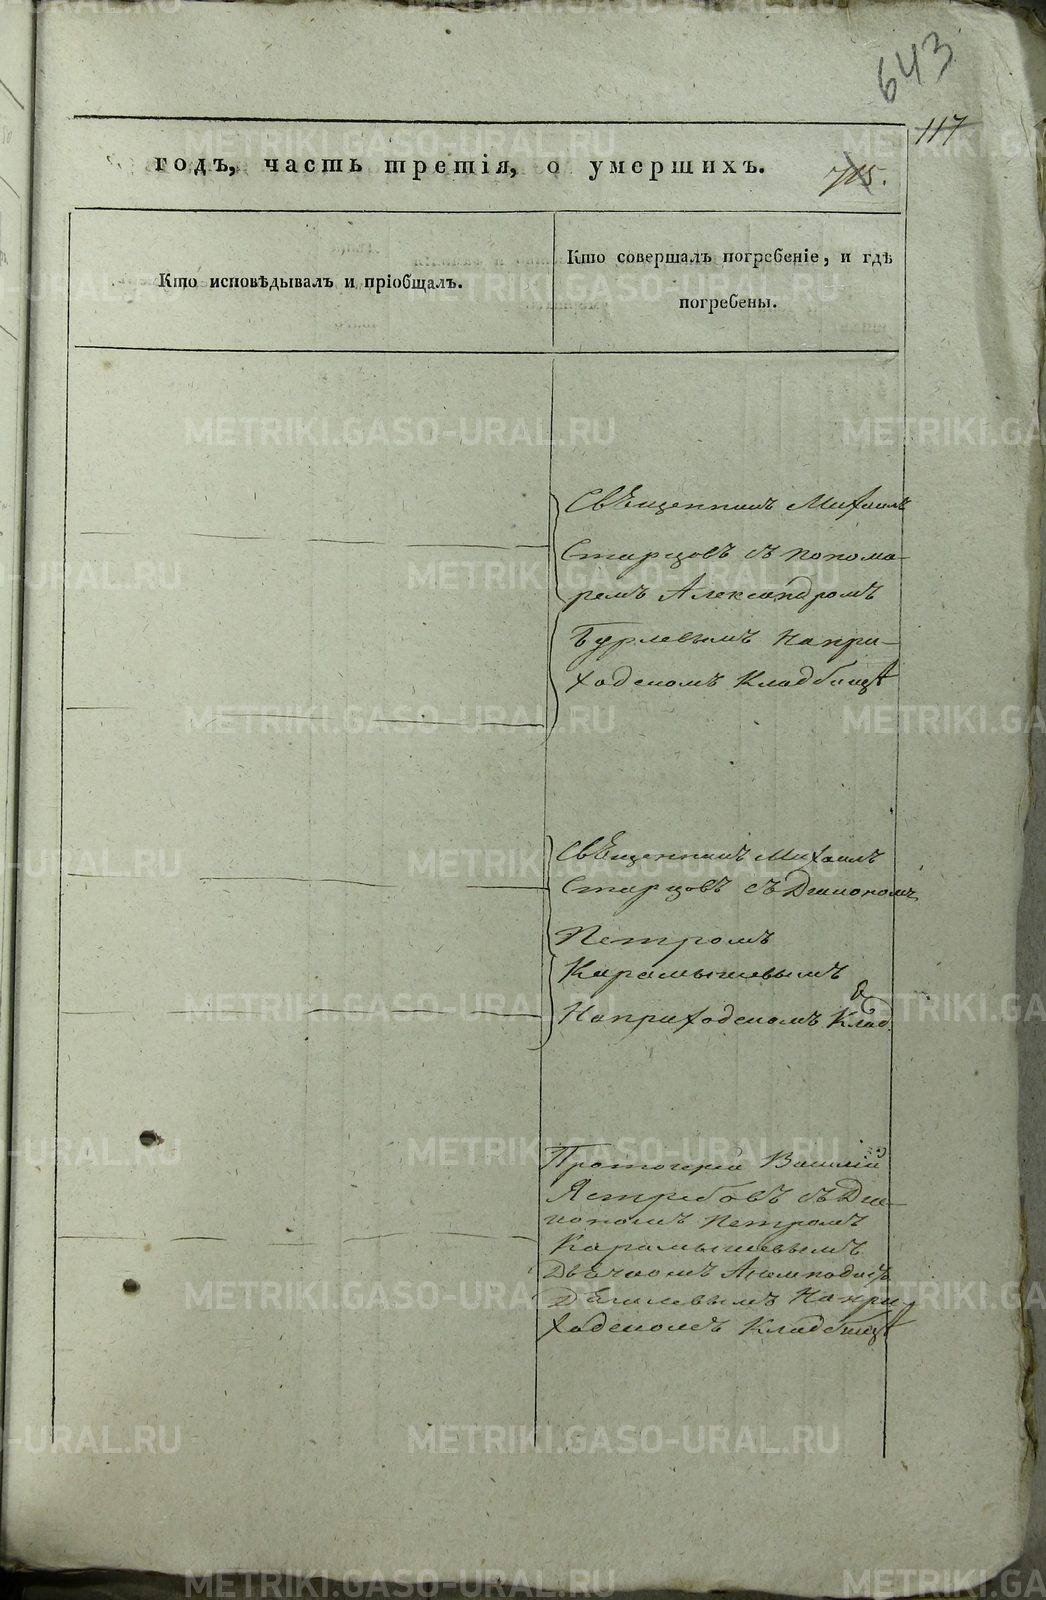 643
117
годъ, часть третія, о умершихъ.
715.
Кто исповѣдывалъ и пріобщалъ.
Кто совершалъ погребеніе, и гдѣ
погребены.
Священникъ Михаилъ
Старцовъ съ понома-
ремъ Александромъ
Бурлевымъ На при-
ходскомъ Кладбищѣ
Священникъ Михаилъ
Старцовъ съ Діакономъ
Петромъ
Карамышевымъ
На приходскомъ Клад.
Протоіерей Василій
Ястребовъ съ Діа-
кономъ Петромъ
Карамышевымъ
Дьячкомъ
На при-
ходскомъ Кладбищѣ
METRIKI.GASO-URAL.RU